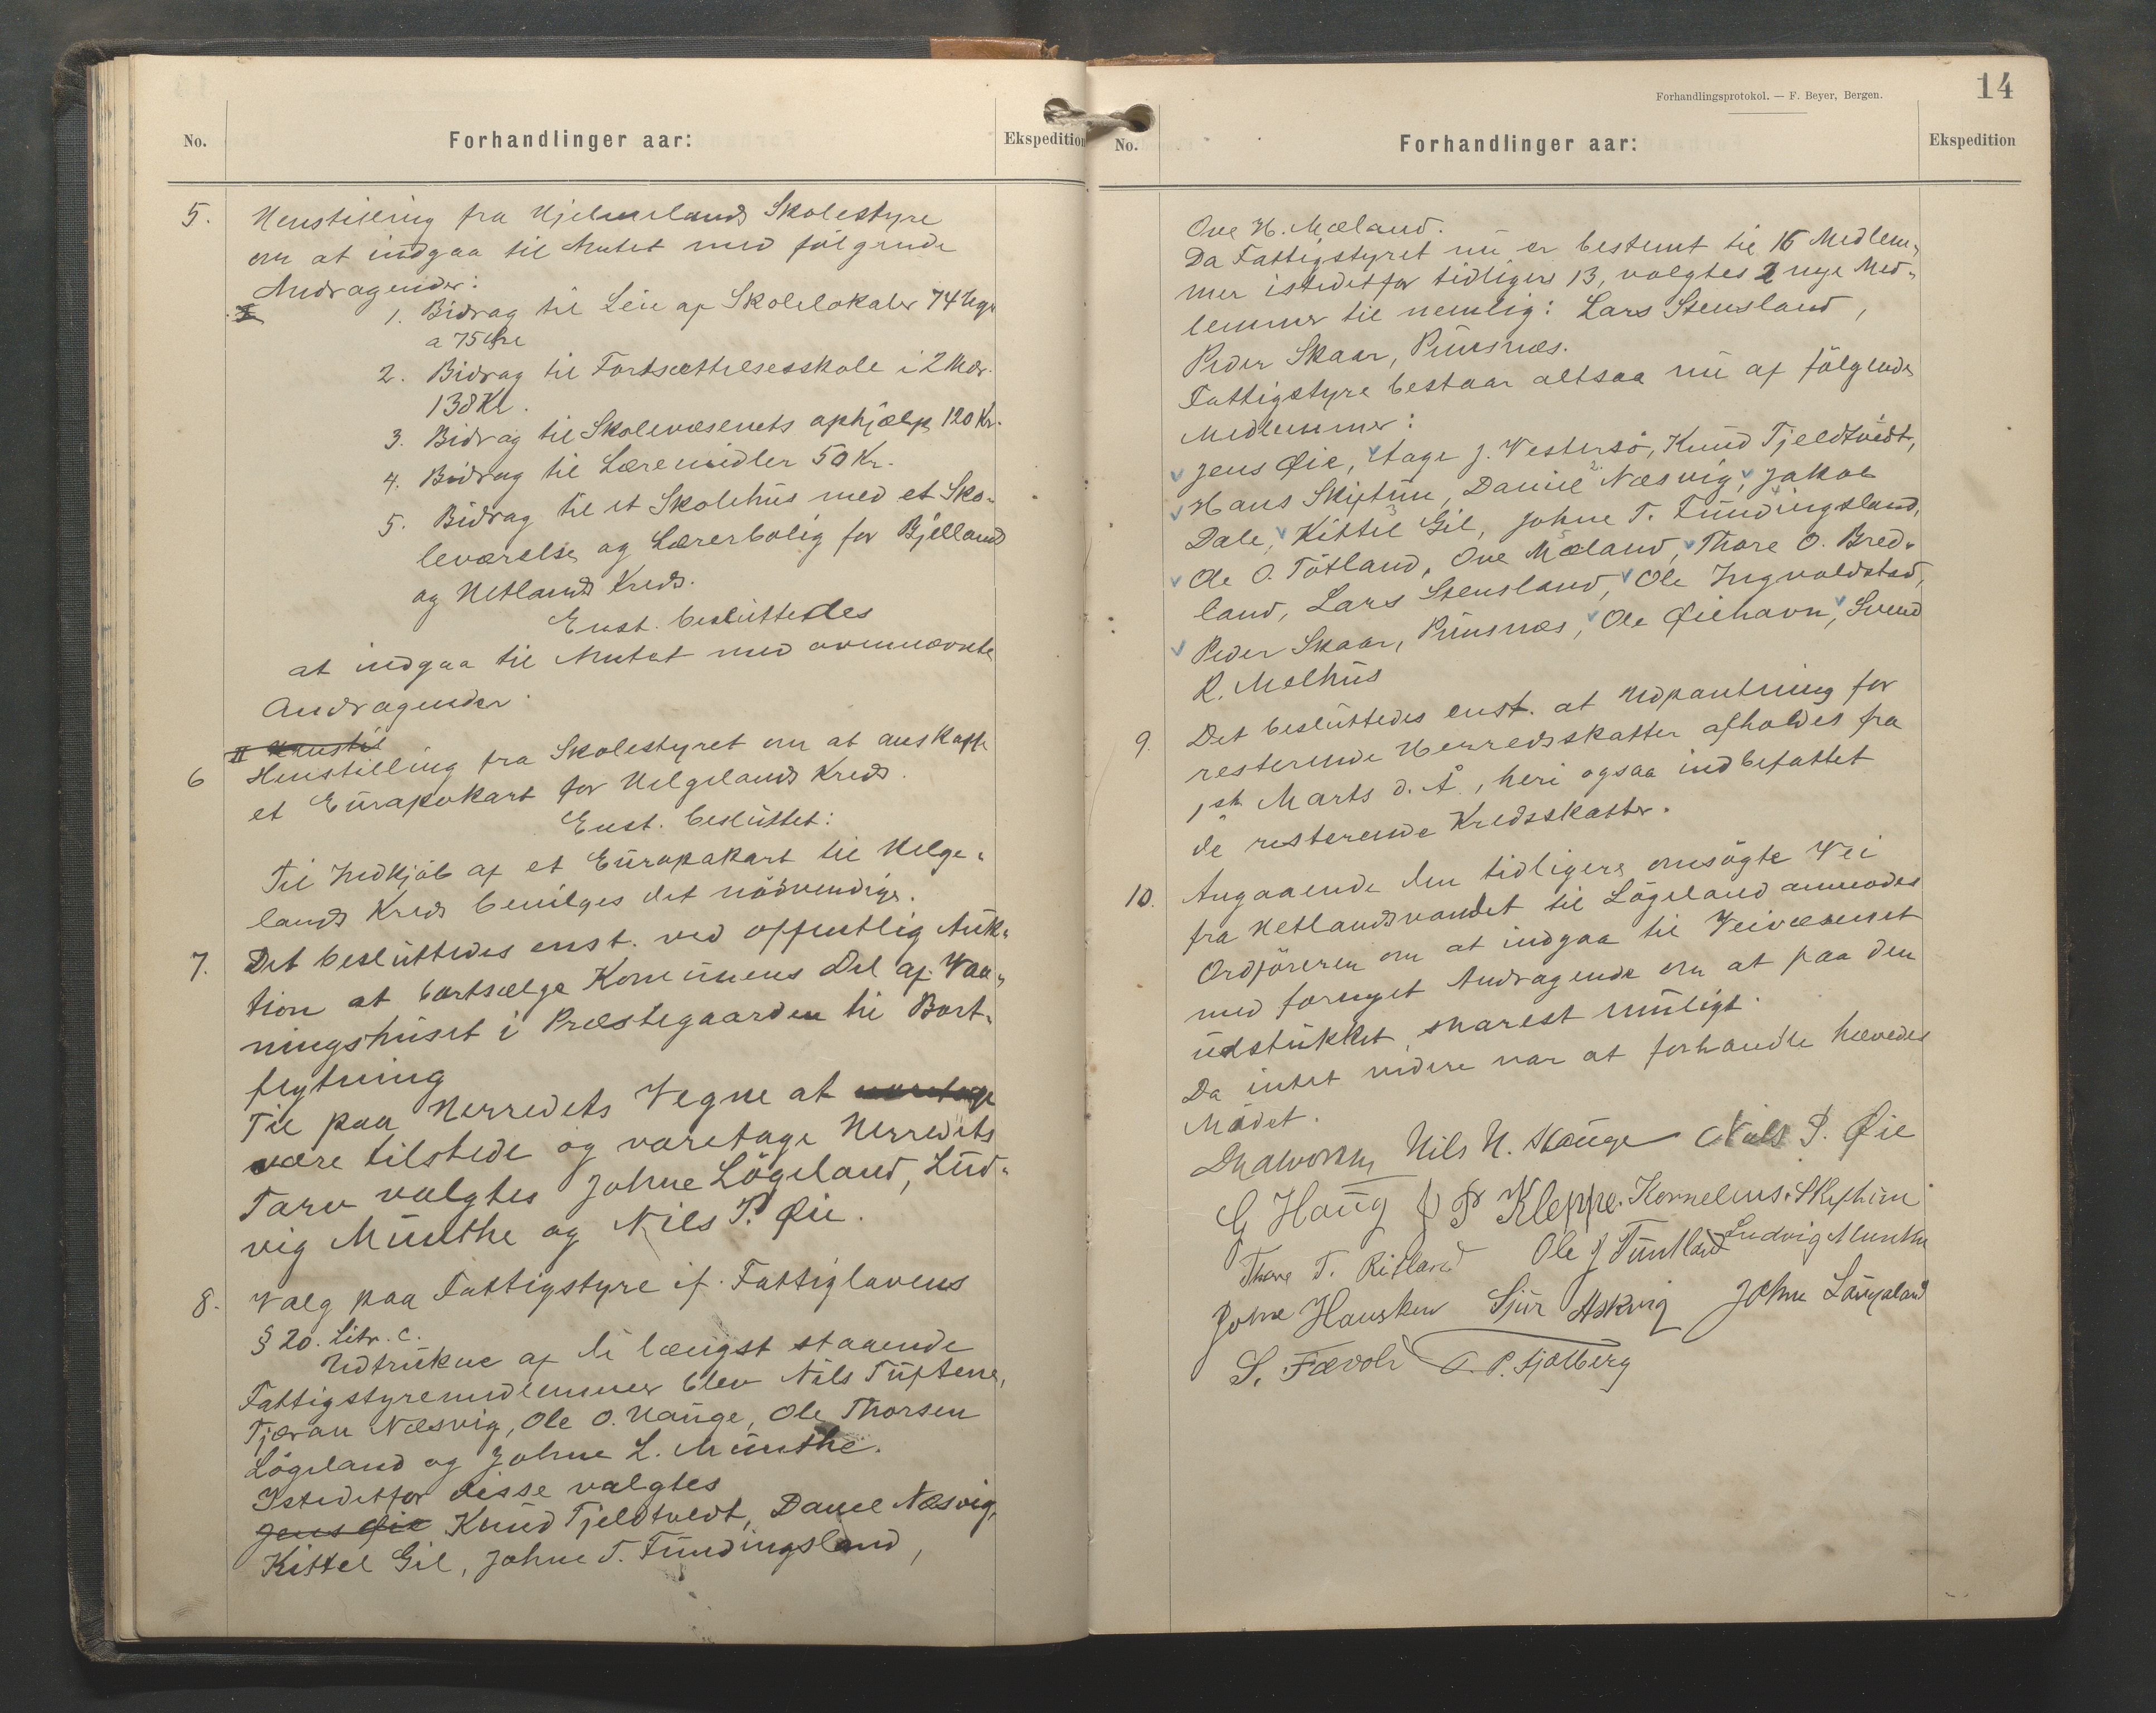 No.
Forhandlinger aar:
Ekspedition
5. Henstilling fra Hjelmelands Skolestyre
om at indgaa til Amtet med følgende
Andragender:
1. Bidrag til Leie af Skolelokaler 74 Uger
a 75 Øre
2. Bidrag til Fortsættelsesskole i 2 Mdr.
138 Kr.
3. Bidrag til Skolevæsenets ophjælp 120 Kr.
4. Bidrag til Læremidler 50 Kr.
5. Bidrag til et Skolehüs med et Sko-
leværelse og Lærerbolig for Bjelland
og Hetlands Kreds.
Enst. beslüttedes
at indgaa til Amtet med ovennævnte
Andragender.
II Henstil
6 Henstilling fra Skolestyret om at anskaffe
et Eüropakart for Helgelands Kreds.
Enst. beslüttet:
Til Indkjöb af et Eüropakart til Helge-
lands Kreds bevilges det nödvendige.
7. Det beslüttedes enst. ved offentlig Aük-
tion at bortsælge Komünens Del af Vaa-
ningshüset i Præstegaarden til Bort-
flytning
Til paa Herredets Vegne at varetage
være tilstede og varetage Herredets
Tarv valgtes Johne Lögeland, Lüd-
vig Münthe og Nils T. Øie.
8. Valg paa Fattigstyre if. Fattiglovens
§ 20. Litr. c.
Udtrükne af de længst staaende
Fattigstyremedlemmer blev Nils Tüftene,
Tjeran Næsvig, Ole O. Haüge, Ole Thorsen
Lögeland og Johne L. Münthe.
Istedetfor disse valgtes
Jens Øie Knüd Tjeldtvedt, Daniel Næsvig,
Kittel Gil, Johne T. Fündingsland,
Forhandlingsprotokol. — F. Beyer, Bergen.
14
No.
Forhandlinger aar:
Ekspedition
Ove H. Mæland.
Da Fattigstyret nü er bestemt til 15 Medlem-
mer istedetfor tidligere 13, valgtes 2 nye Med-
lemmer til nemlig: Lars Stensland,
Peder Skaar, Püntsnæs.
Fattigstyre bestaar altsaa nü af følgende
Medlemmer:
Jens Øie, Aage J. Vestersö, Knüd Tjeldtvedt,
Hans Skiftün, Daniel Næsvig, Jakob
Dale, Kittil Gil, Johne T. Fündingsland,
Ole O. Tötland, Ove Mæland, Thore O. Bred-
land, Lars Stensland, Ole Ingvaldstad,
Peder Skaar, Püntsnæs, Ole Øiehavn, Svend
R. Molhüs
9. Det beslüttedes enst. at Udpantning for
resterende Herredsskatter afholdes fra
1ste Marts d. Å., heri ogsaa indbefattet
de resterende Kredsskatter.
10. Angaaende den tidligere omsögte Vei
fra Hetlandsvandet til Lögeland anmodes
Ordföreren om at indgaa til Veivæsenet
med fornyet Andragende om at faa den
üdstükket snarest müligt.
Da intet videre var at forhandle hævedes
Mödet.
Nils H. Haüge Nils T. Øie
G Haüg J P Kleppe. Kornelius Skiftün
Thore T. Ritland Ole J Tüntland Ludvig Munthe
Johne Hausken Sjür Askvig Johne Lögeland
S. Fævold O. P. Fjotberg